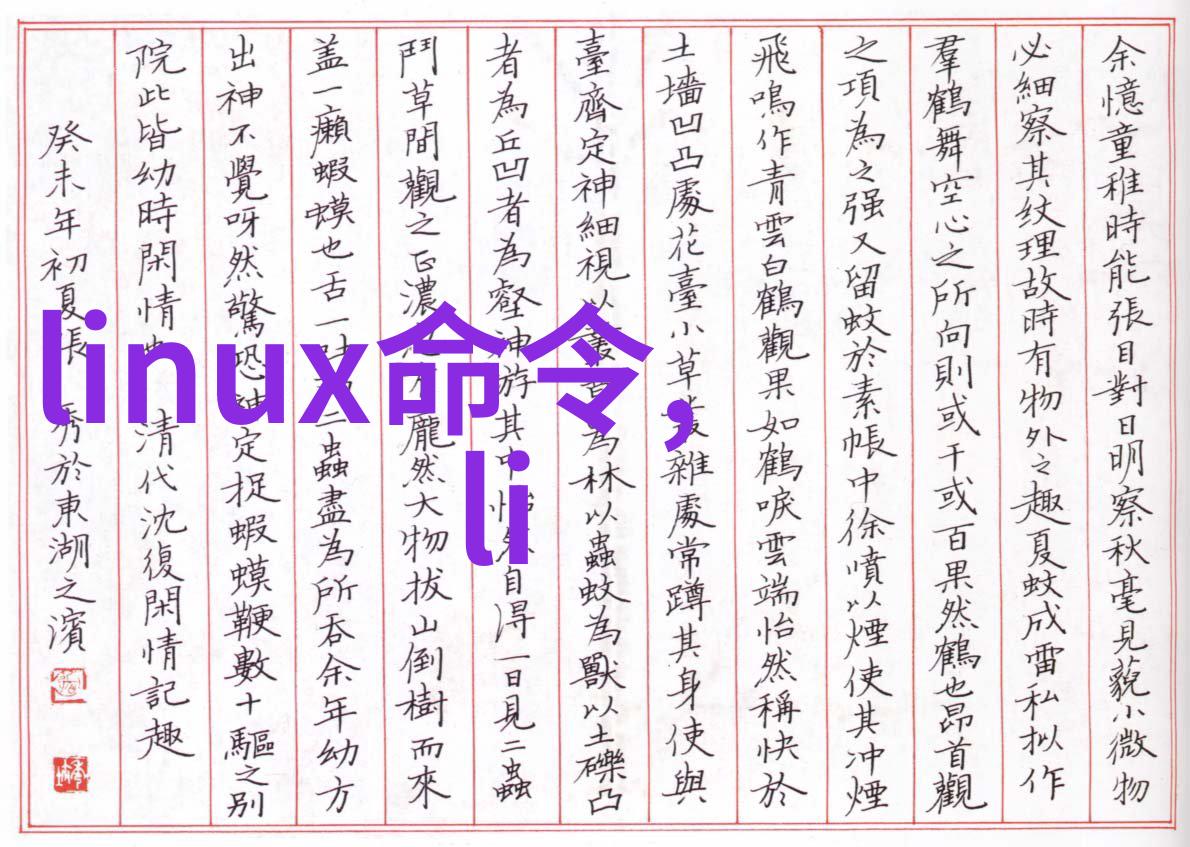 余憶童稚時能張目對日明察秋毫見藐小微物
必細察其紋理故時有物外之趣夏蚊成雷私拟作
羣鶴舞空心之所向則或千或百果然鶴也昂首觀
之項為之强又留蚊於素帳中徐噴以煙使其冲煙
飛鳴作青雲白鶴觀果如鶴唳雲端怡然稱快於
土墻凹凸處花臺小草叢雜處常蹲其身使與
臺齊定神細視以叢草為林以蟲蚊為獸以土礫凸
者為丘凹者為壑神游其中怡然自得一日見二蟲
鬥草間觀之正濃龐然大物拔山倒樹而來
盖一癩蝦蟆也舌一吐二蟲盡為所吞余年幼方
出神不覺呀然驚恐神定捉蝦蟆鞭數十驅之别
院此皆幼時閑情也 清代沈復閑情記趣
癸未年初夏張 秀於東湖之濱
linux命令,
li